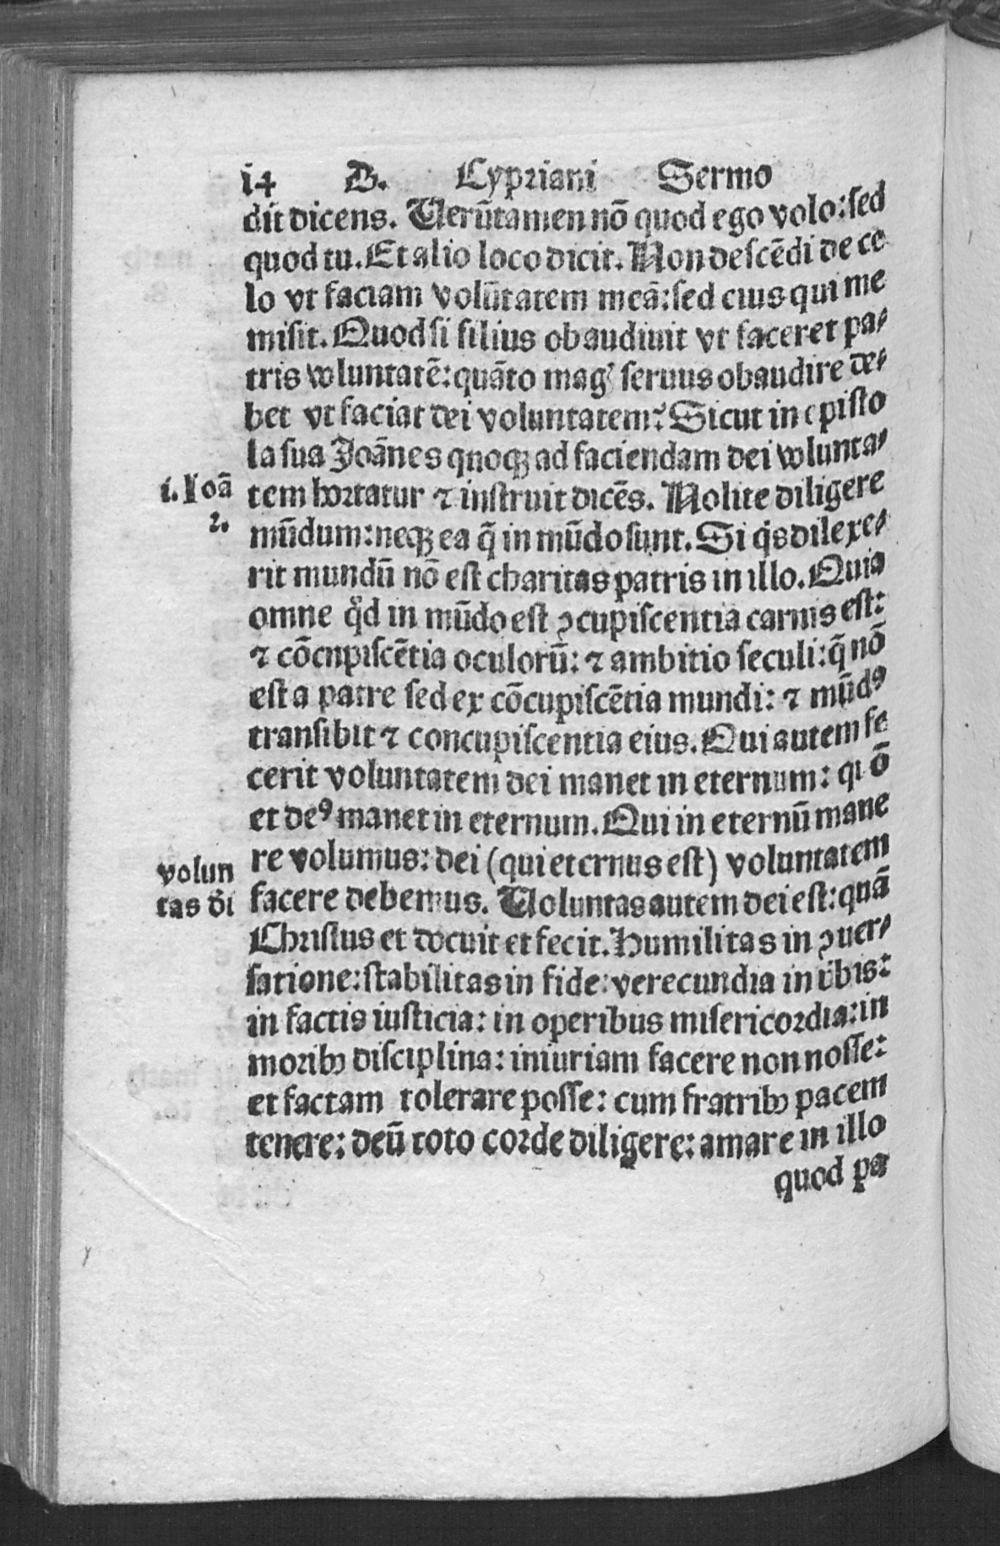 i4 D. Cypriani Sermo
dit dicens. Uerūtamen nō quod ego volo: sed
quod tu. Et alio loco dicit. Non descēdi de ce
lo vt faciam volūtatem meā: sed eius qui me
misit. Quod si filius obaudiuit vt faceret pa⸗
tris voluntatē: quāto magꝭ seruus obaudire de⸗
bet vt faciat dei voluntatem? Sicut in episto
la sua Joānes quoqꝫ ad faciendam dei volunta⸗
i. Ioā
2.
tem hortatur ⁊ instruit dicēs. Nolite diligere
mūdum: neqꝫ ea q̄ in mūdo sunt. Si q̇s dilexe⸗
rit mundū nō est charitas patris in illo. Quia
omne qd̛ in mūdo est ꝯcupiscentia carnis est:
⁊ cōcupiscētia oculorū: ⁊ ambitio seculi: q̄ nō
est a patre sed ex cōcupiscētia mundi: ⁊ mūdꝰ
transibit ⁊ concupiscentia eius. Qui autem fe
cerit voluntatem dei manet in eternum: quō
et deꝰ manet in eternum. Qui in eternū mane
volun
tas dī
re volumus: dei (qui eternus est) voluntatem
facere debemus. Uoluntas autem dei est: quā
Christus et docuit et fecit. Humilitas in ꝯuer⸗
satione: stabilitas in fide: verecundia in v̄bis:
in factis iusticia: in operibus misericordia: in
moribꝰ disciplina: iniuriam facere non nosse:
et factam tolerare posse: cum fratribꝰ pacem
tenere: deū toto corde diligere: amare in illo
quod pa